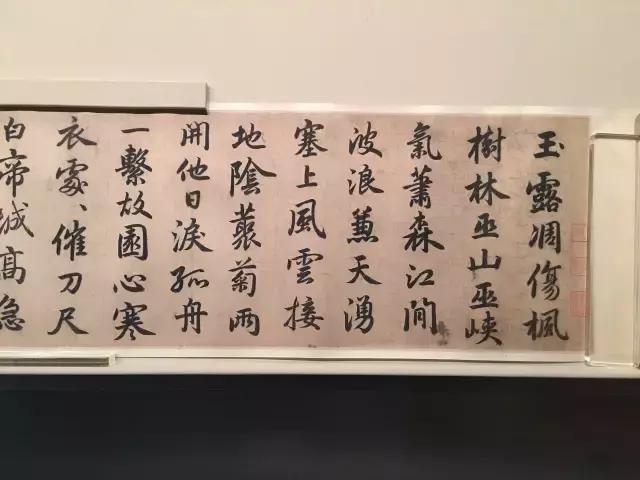 玉露凋傷楓
樹林巫山巫峽
氣蕭森江間
波浪兼天湧
塞上風雲接
地陰叢菊兩
開他日淚孤舟
一繫故園心寒
衣處、催刀尺
白帝城高急